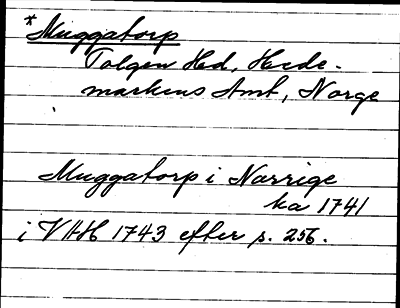 *Muggatorp
Tolgen Hd, Hede-
markens Amt, Norge
Muggatorp i Norrige
ka 1741
i VHH 1743 efter s. 256.